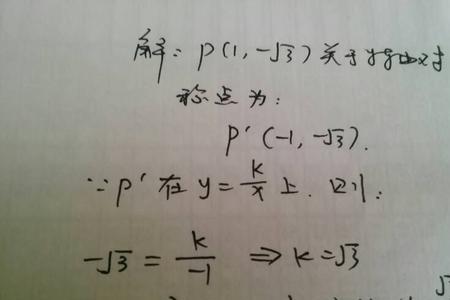 解：P(1,-√3)关于y轴对
称点为：
P′(-1,-√3).
∵P′在y=k/x上.则：
-√3=k/-1 ⇒k=√3
√3